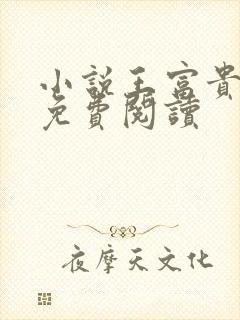 小說王富貴
免費閱讀
夜摩天文化